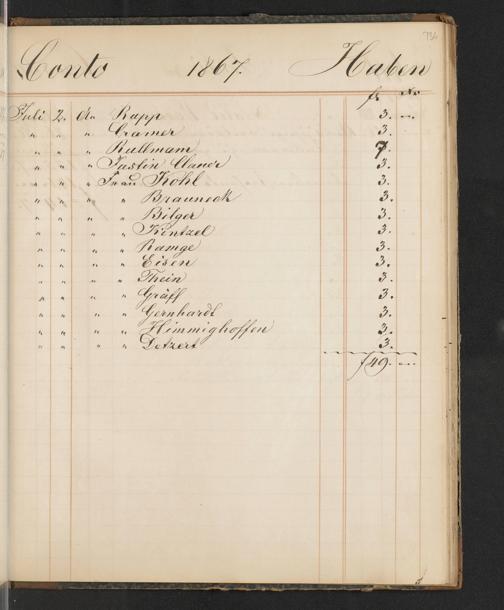 Conto 1867. Haben
fr. Xr
Juli 2. An Rapp 3. —
" " " " Cramer 3.
" " " " Rullmann 7.
" " " " Justin Claner 3.
" " " " Frau Kohl 3.
" " " " " Brauneck 3.
" " " " " Bilger 3.
" " " " " Kintzel 3.
" " " " " Ramge 3.
" " " " " Eisen 3.
" " " " " Thein 3.
" " " " " Gräff 3.
" " " " " Gernhardt 3.
" " " " " Himmighoffen 3.
" " " " " Detzert 3.
f 49. —